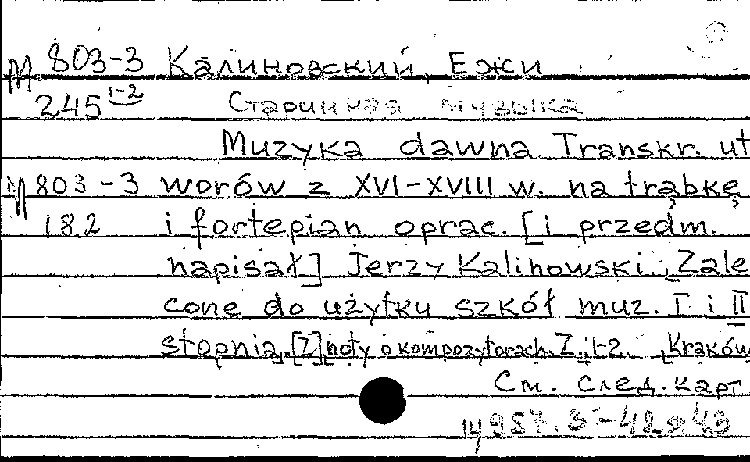 М 803-3 Калиновский, Ежи
245 1-2 Старинная музыка
Muzyka dawna Transkr. ut
М 803-3 worów z XVI-XVIII w. na trąbkę
182 i fortepian oprac. [i przedm.
napisał] Jerzy Kalinowski. Zale
cone do użytku szkół muz. I i II
stopnia. [Z] noty o kompozytorach. Z. 1-2. Kraków
См. след. карт